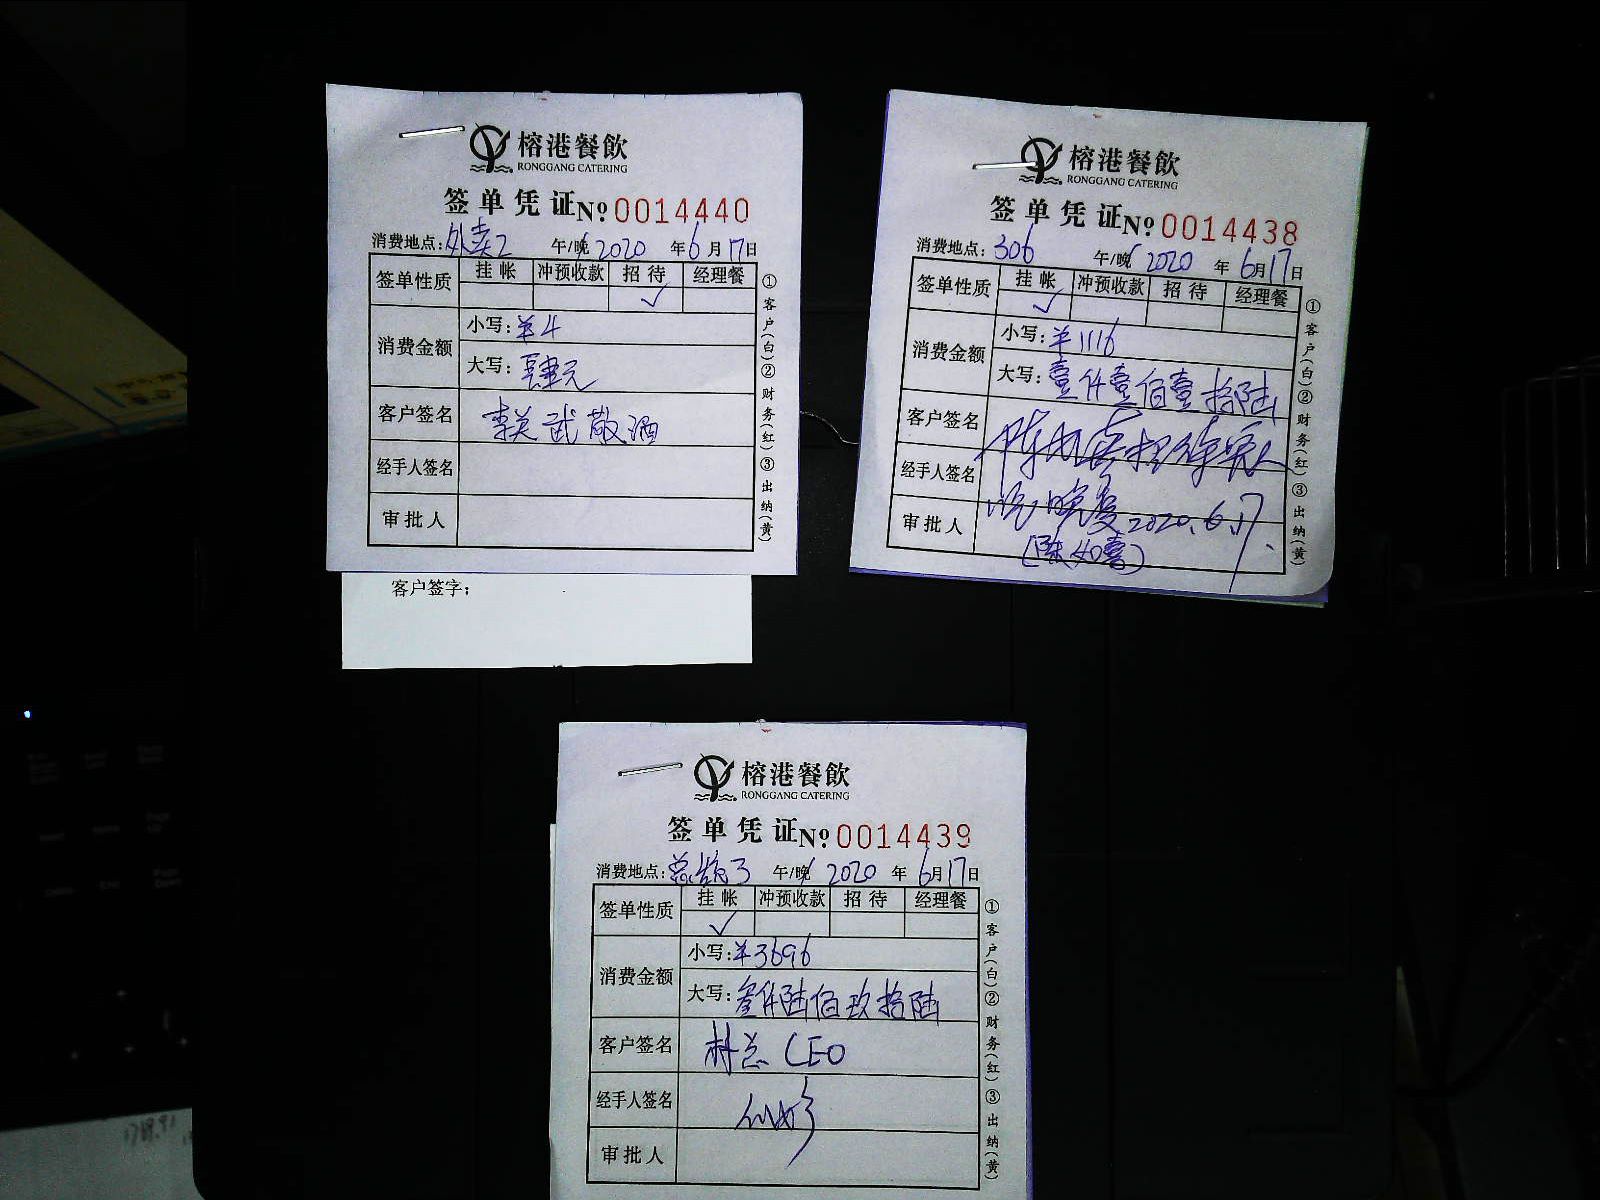 榕港餐飲
RONGGANG CATERING
签单凭证 №0014440
消费地点:外卖2 午/晚 2020年6月17日
签单性质 挂帐 冲预收款 招待 经理餐
✓
消费金额 小写:¥4
大写:肆元
客户签名 武敬酒
经手人签名
审批人
①客户(白)②财务(红)③出纳(黄)
客户签字:
榕港餐飲
RONGGANG CATERING
签单凭证 №0014438
消费地点:306 午/晚 2020年6月17日
签单性质 挂帐 冲预收款 招待 经理餐
✓
消费金额 小写:¥1116
大写:壹仟壹佰壹拾陆
客户签名
经手人签名
审批人 2020.6.17
(陈如喜)
①客户(白)②财务(红)③出纳(黄)
榕港餐飲
RONGGANG CATERING
签单凭证 №0014439
消费地点: 午/晚 2020年6月17日
签单性质 挂帐 冲预收款 招待 经理餐
✓
消费金额 小写:¥3696
大写:叁仟陆佰玖拾陆
客户签名 林总 CEO
经手人签名
审批人
①客户(白)②财务(红)③出纳(黄)